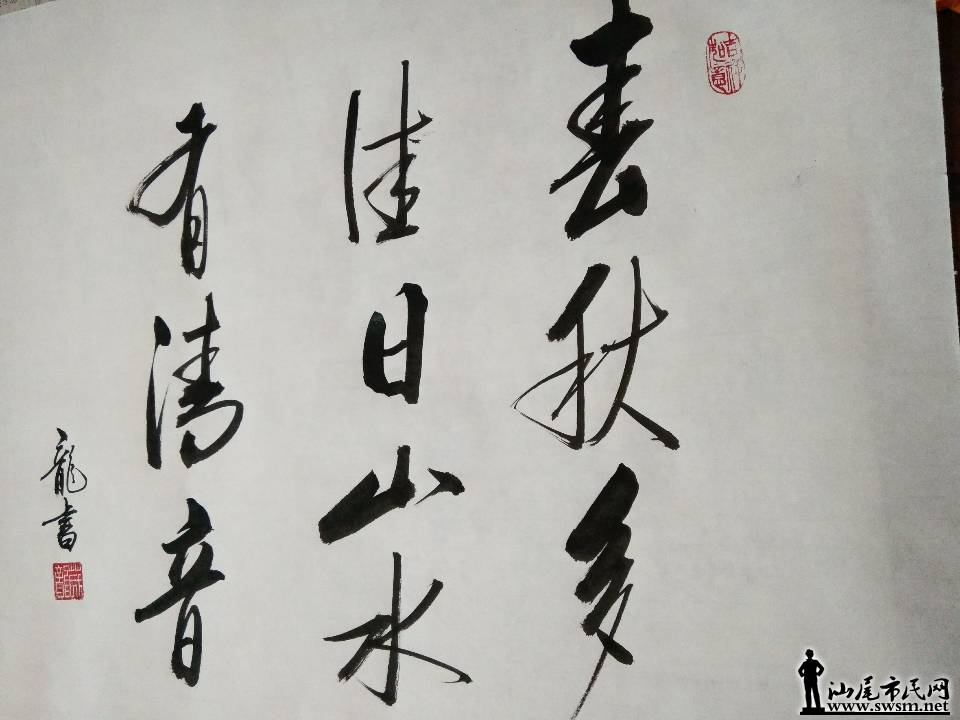 春秋多
佳日山水
有清音
龍書
汕尾市民网
www.swsm.net